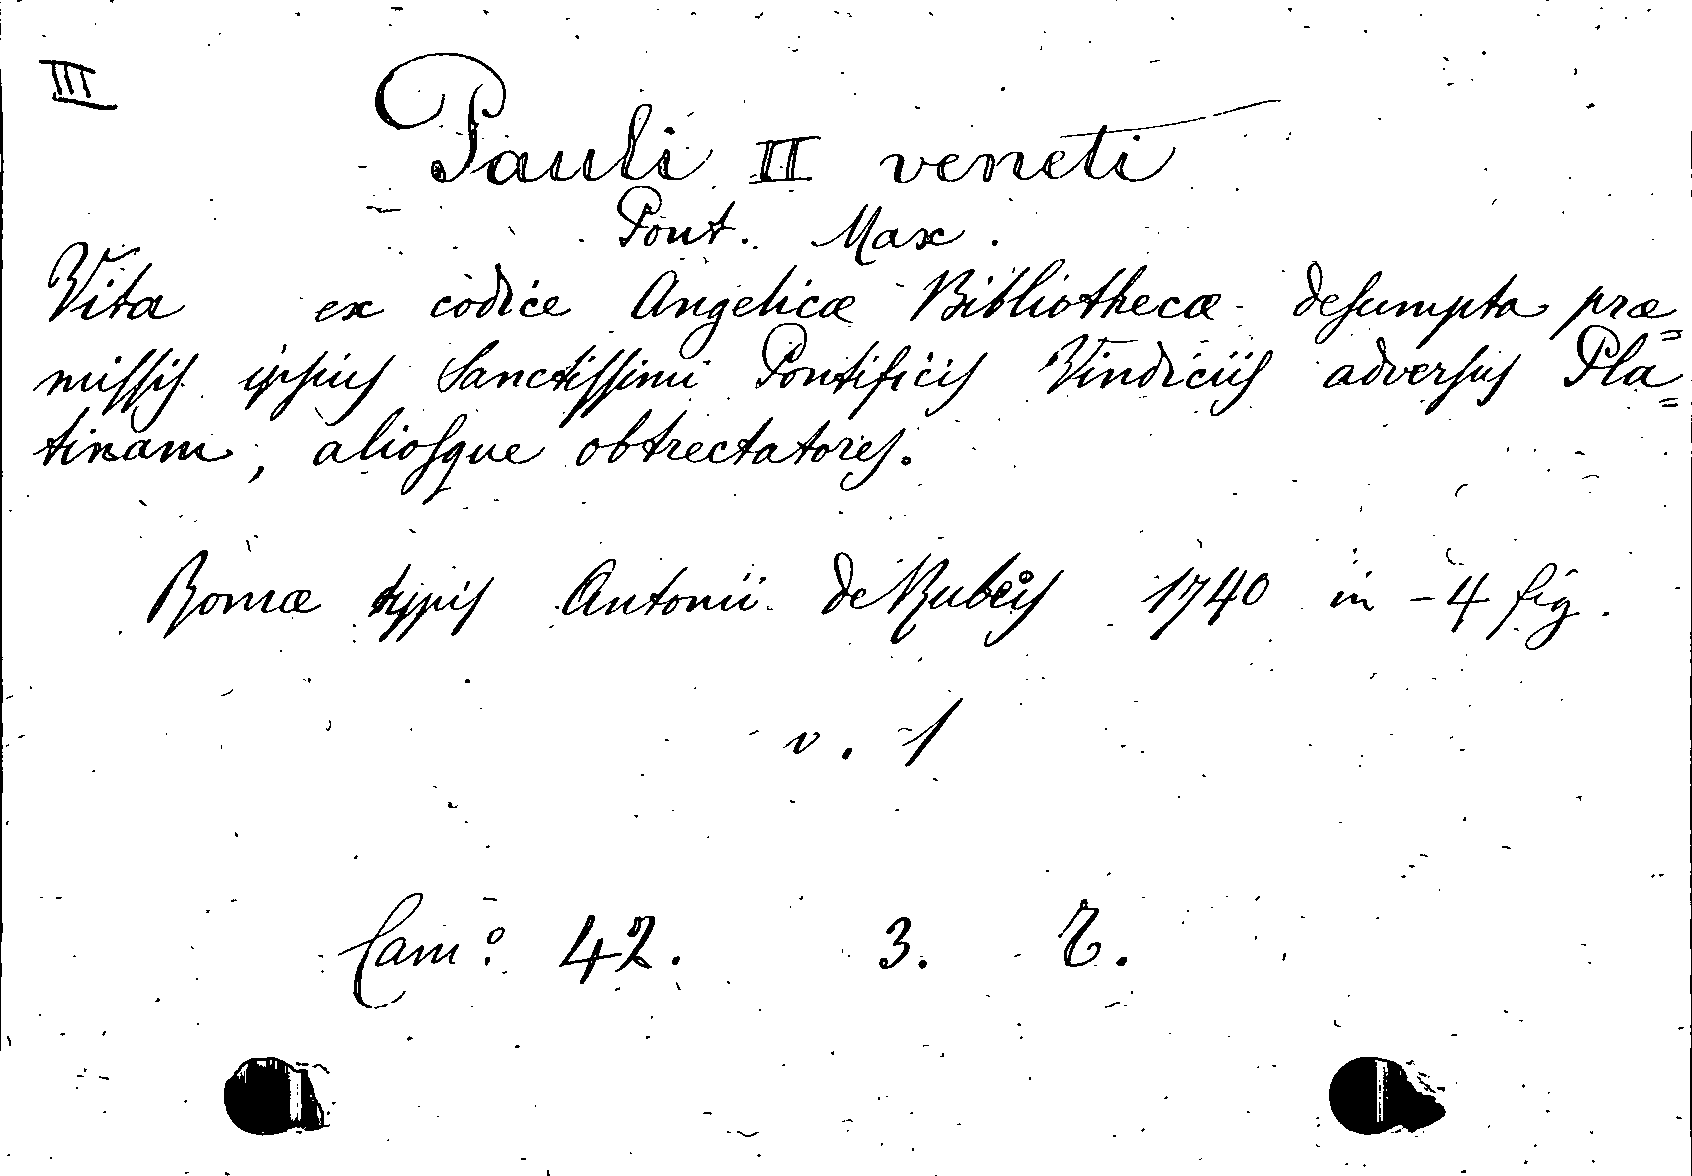 III
Pauli II veneti
Pont. Max.
Vita ex codice Angelicæ Bibliothecæ desumpta præ=
missis ipsius Sanctissimi Pontificis Vindiciis adversus Pla=
tinam, aliosque obtrectatores.
Romæ typis Antonii de Rubeis 1740 in-4 fig.
v. 1
Cam: 42. 3.